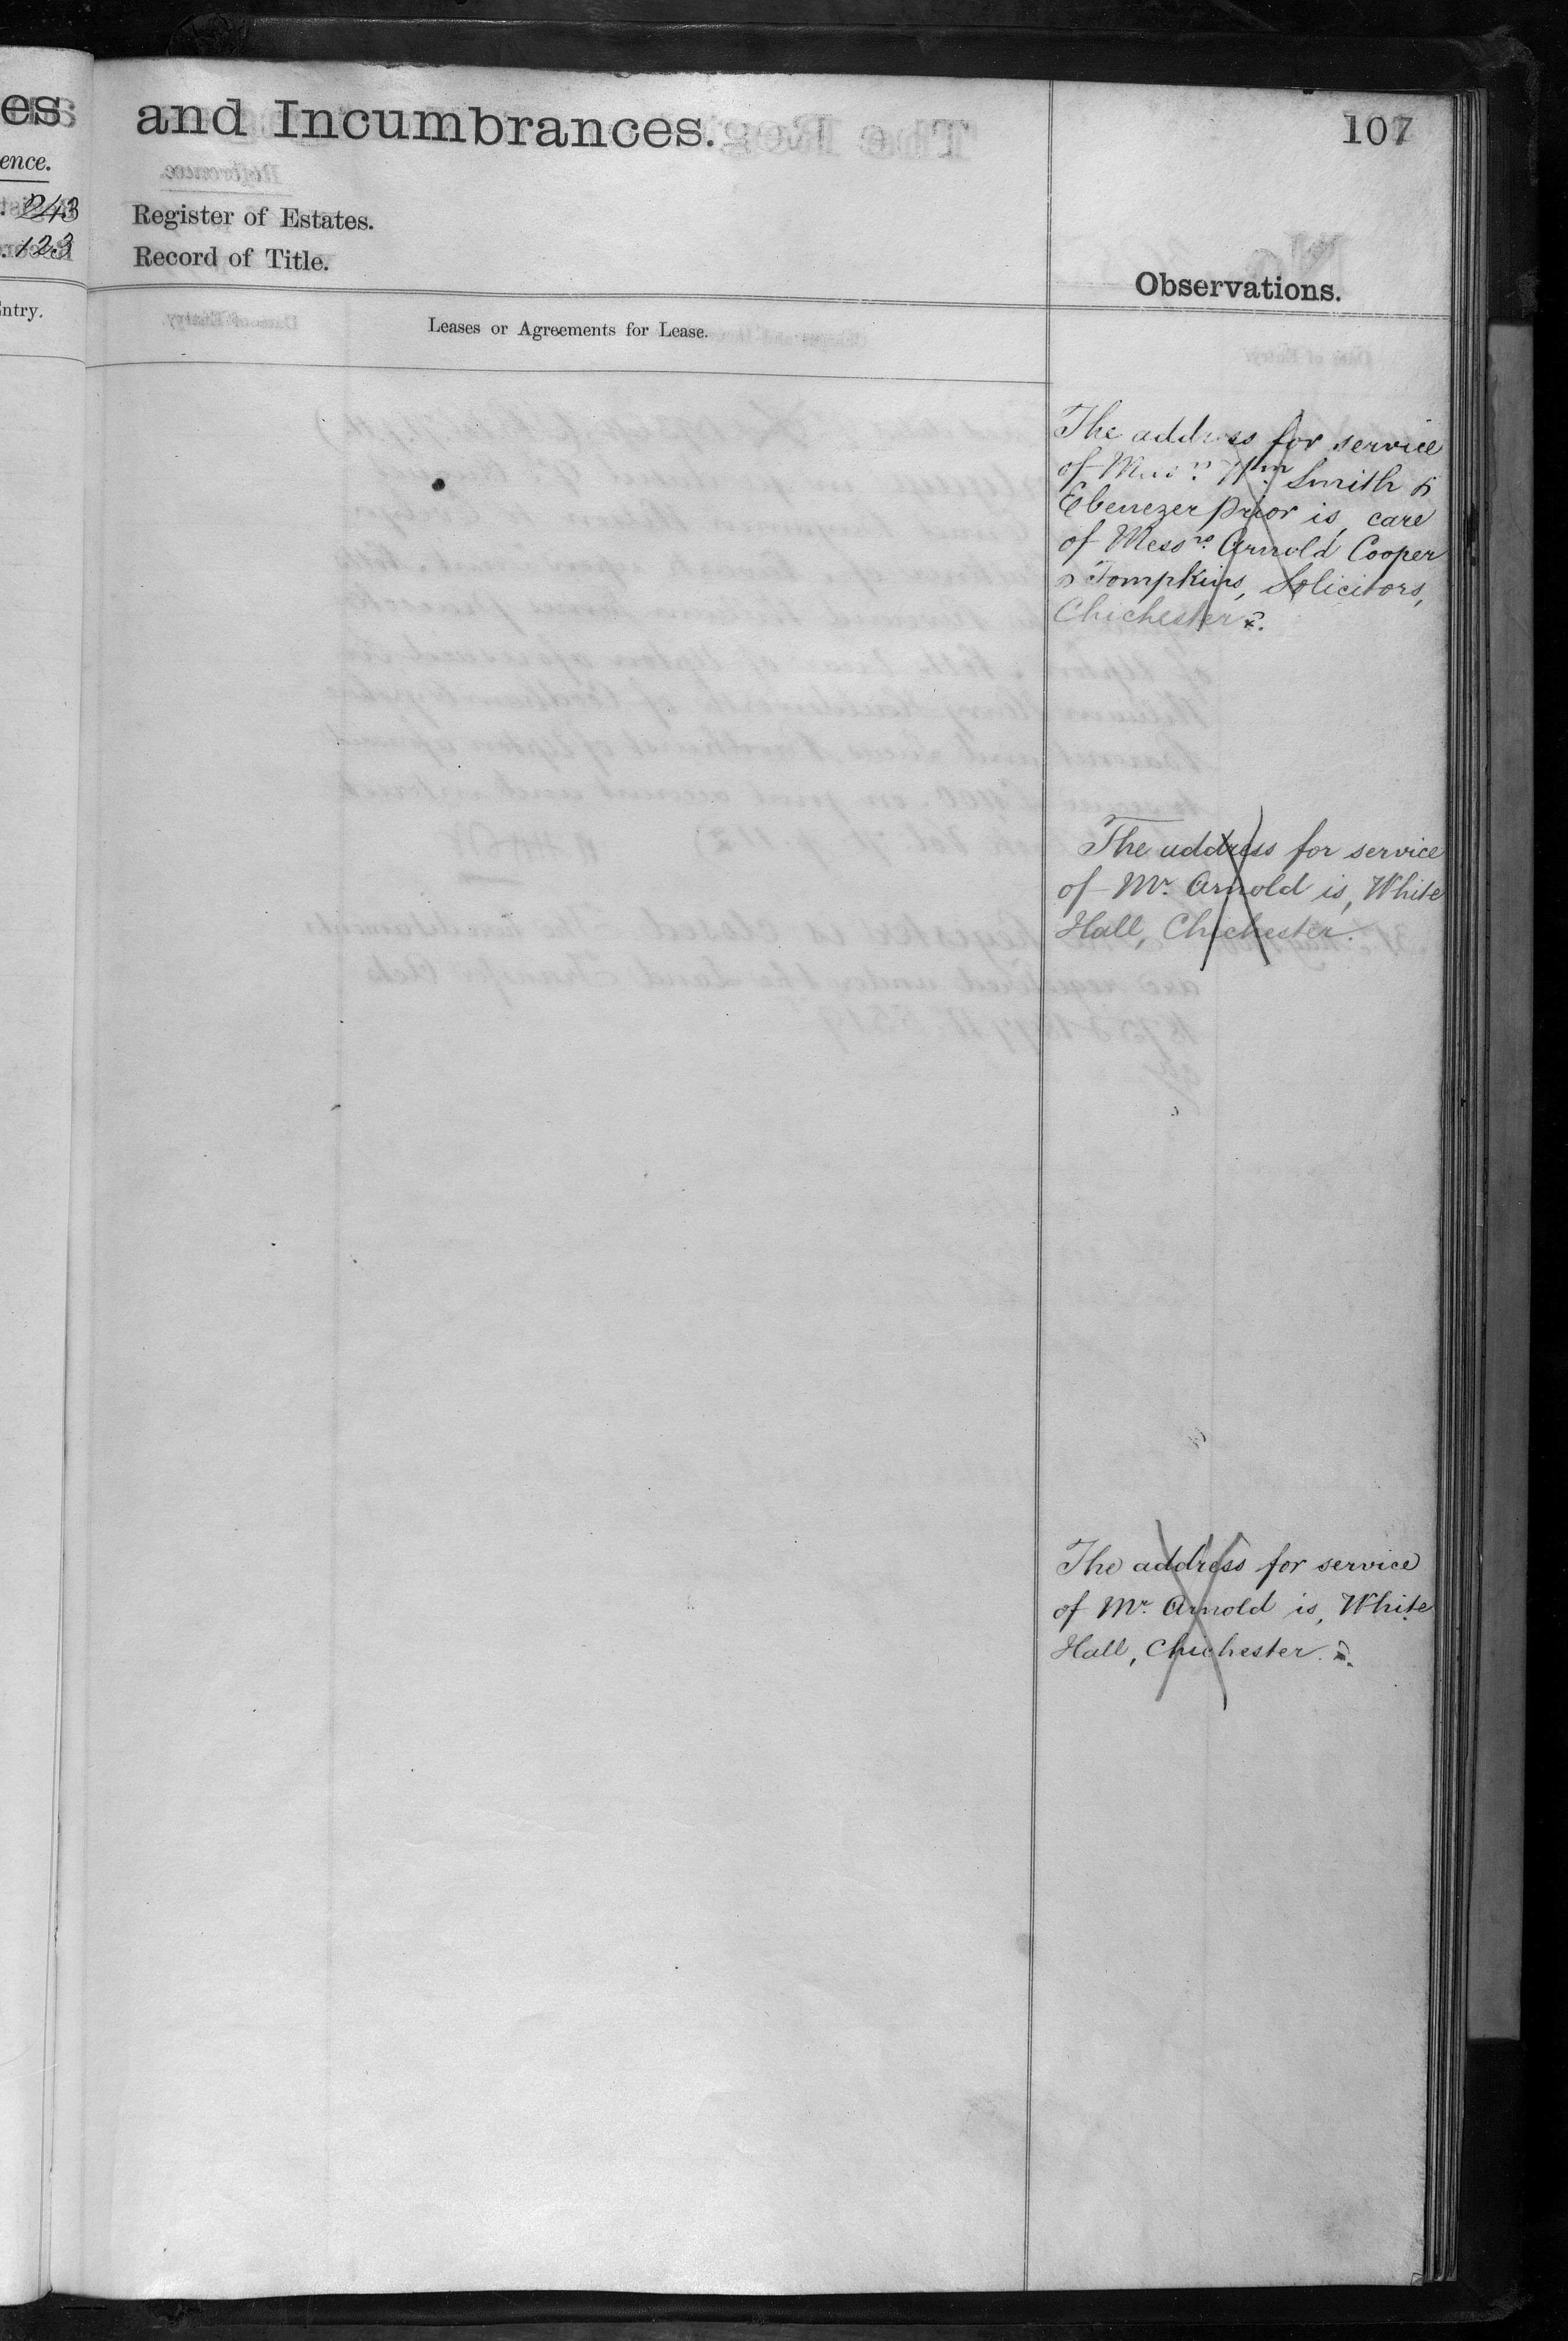 es
ence.
243
123
Entry.
and Incumbrances.
107
Register of Estates.
Record of Title.
Observations.
Leases or Agreements for Lease.
The address for service
of Mess.rs Wm Smith &
Ebenezer Prior is, care
of Mess.rs Arnold Cooper
& Tompkins, Solicitors,
Chichester.
The address for service
of Mr. Arnold is, White
Hall, Chichester.
The address for service
of Mr. Arnold is, White
Hall, Chichester.